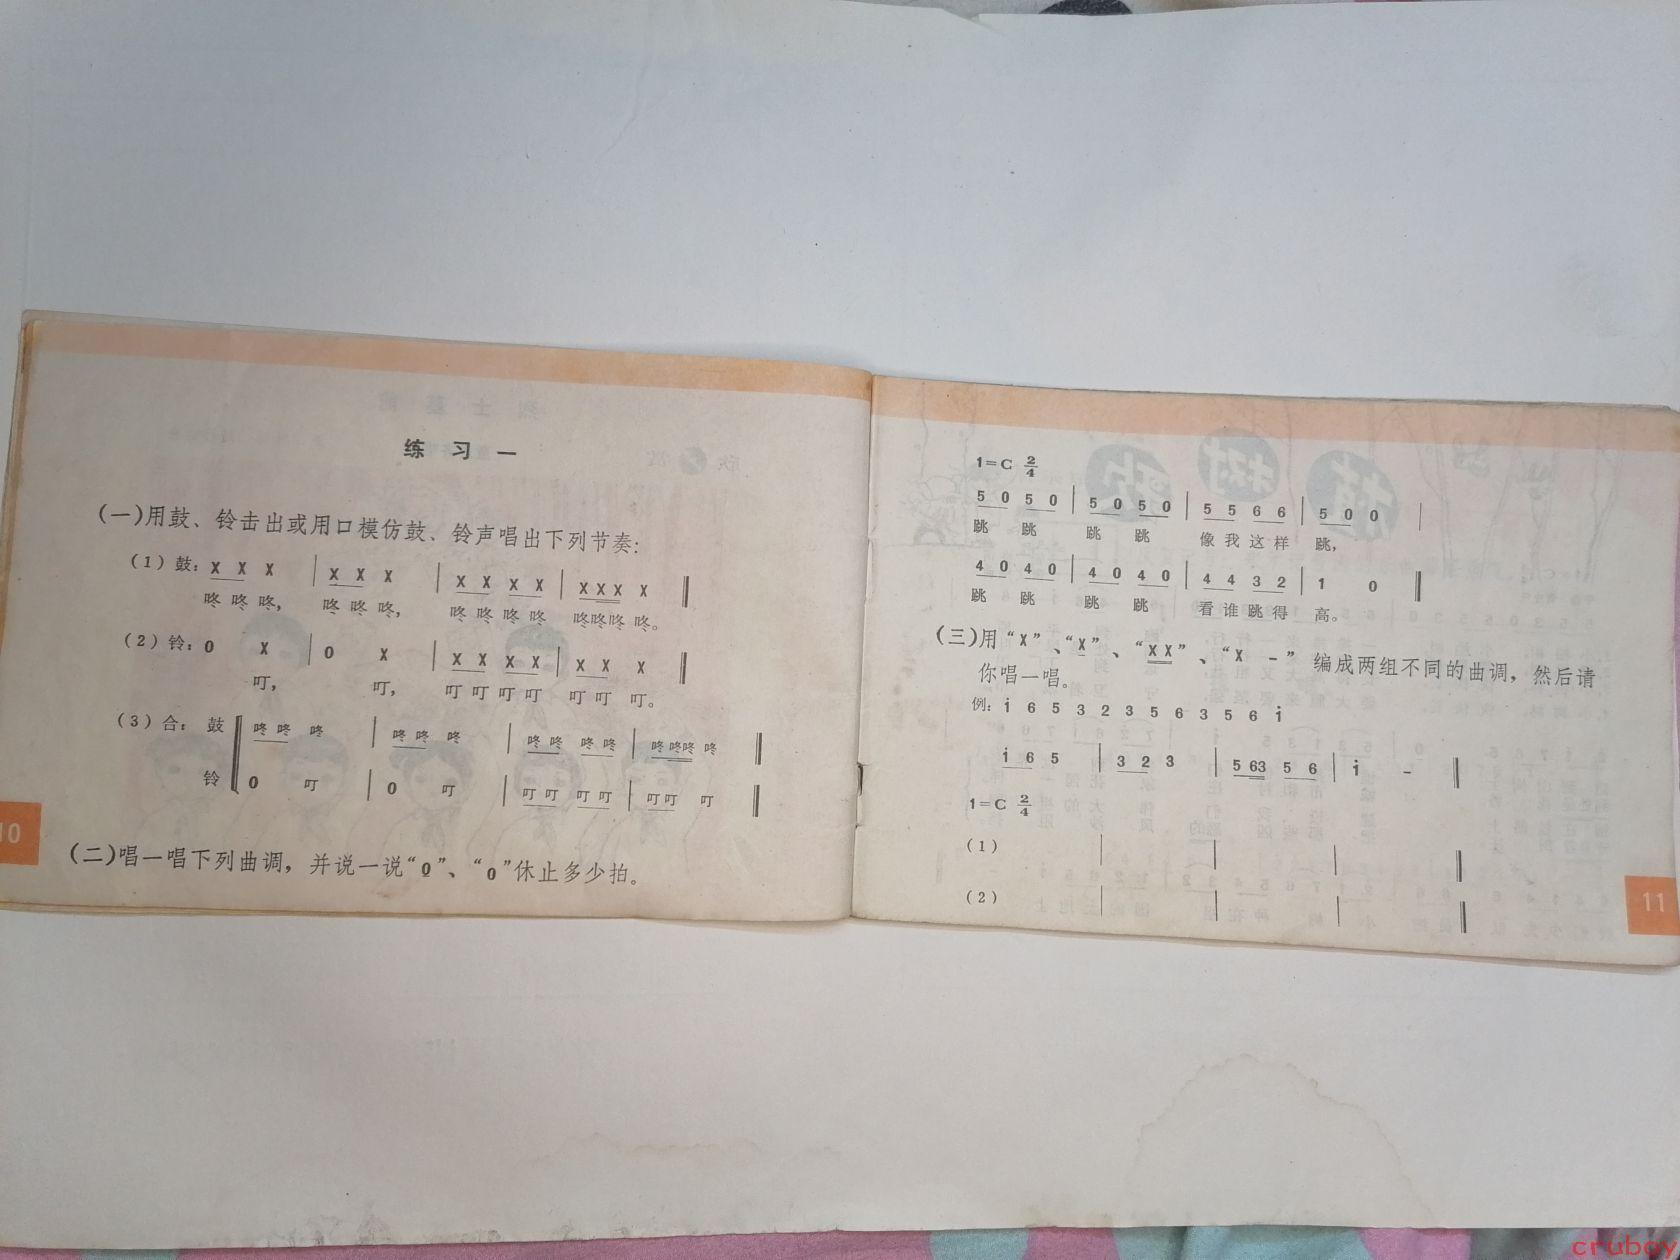 练习一
(一)用鼓、铃击出或用口模仿鼓、铃声唱出下列节奏:
(1)鼓: X X X | X X X | X X X X | X X X X ‖
咚 咚 咚, 咚 咚 咚, 咚 咚 咚 咚 咚咚咚 咚。
(2)铃: 0 X | 0 X | X X X X | X X X ‖
叮, 叮, 叮 叮 叮 叮 叮 叮 叮。
(3)合: 鼓 咚 咚 咚 | 咚 咚 咚 | 咚 咚 咚 咚 | 咚 咚咚 咚 ‖
铃 0 叮 | 0 叮 | 叮 叮 叮 叮 | 叮 叮 叮 ‖
(二)唱一唱下列曲调,并说一说“0”、“0”休止多少拍。
10
1=C 2/4
5 0 5 0 | 5 0 5 0 | 5 5 6 6 | 5 0 0 |
跳 跳 跳 跳 像 我 这 样 跳,
4 0 4 0 | 4 0 4 0 | 4 4 3 2 | 1 0 ‖
跳 跳 跳 跳 看 谁 跳 得 高。
(三)用“X”、“X”、“X X”、“X -”编成两组不同的曲调,然后请
你唱一唱。
例: i 6 5 3 2 3 5 6 3 5 6 i
i 6 5 | 3 2 3 | 5 63 5 6 | i - ‖
1=C 2/4
(1) | | | ‖
(2) | | | ‖
11
cruboy